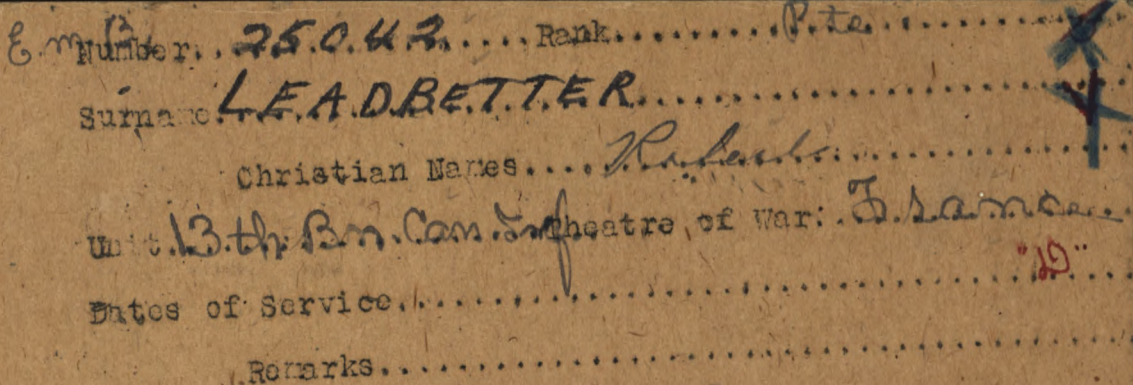 E.m.B. Number. 25042 Rank Pte
Surname LEADBETTER
Christian Names Robert
Unit 13th Bn. Can. Inf. Theatre of War. France
"D"
Dates of Service
Remarks